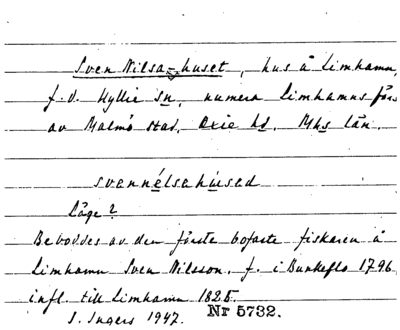 Sven Nilsa-huset, hus å Limhamn,
f.d. Hyllie sn, numera Limhamns förs
av Malmö stad. Oxie hd. Mhs län.
svannélsahúsed
Läge?
Beboddes av den förste bofaste fiskaren å
Limhamn Sven Nilsson, f. i Bunkeflo 1796
infl. till Limhamn 1825.
I. Ingers 1947. Nr 5732.